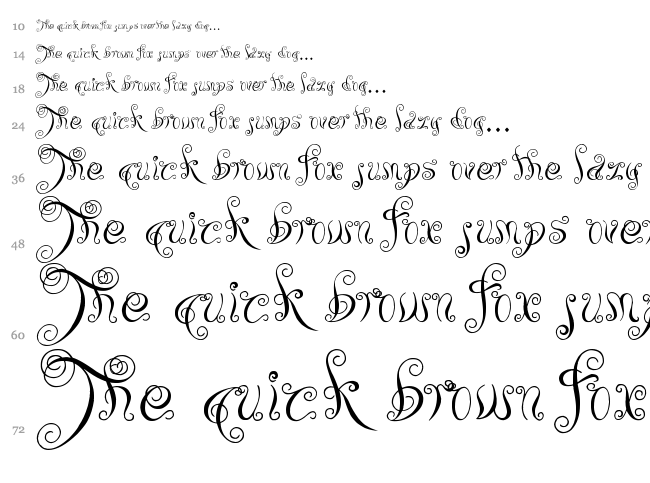 10 The quick brown fox jumps over the lazy dog...
14 The quick brown fox jumps over the lazy dog...
18 The quick brown fox jumps over the lazy dog...
24 The quick brown fox jumps over the lazy dog...
36 The quick brown fox jumps over the lazy
48 The quick brown fox jumps over
60 The quick brown fox jump
72 The quick brown fox